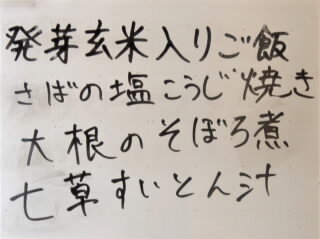 発芽玄米入りご飯
さばの塩こうじ焼き
大根のそぼろ煮
七草すいとん汁